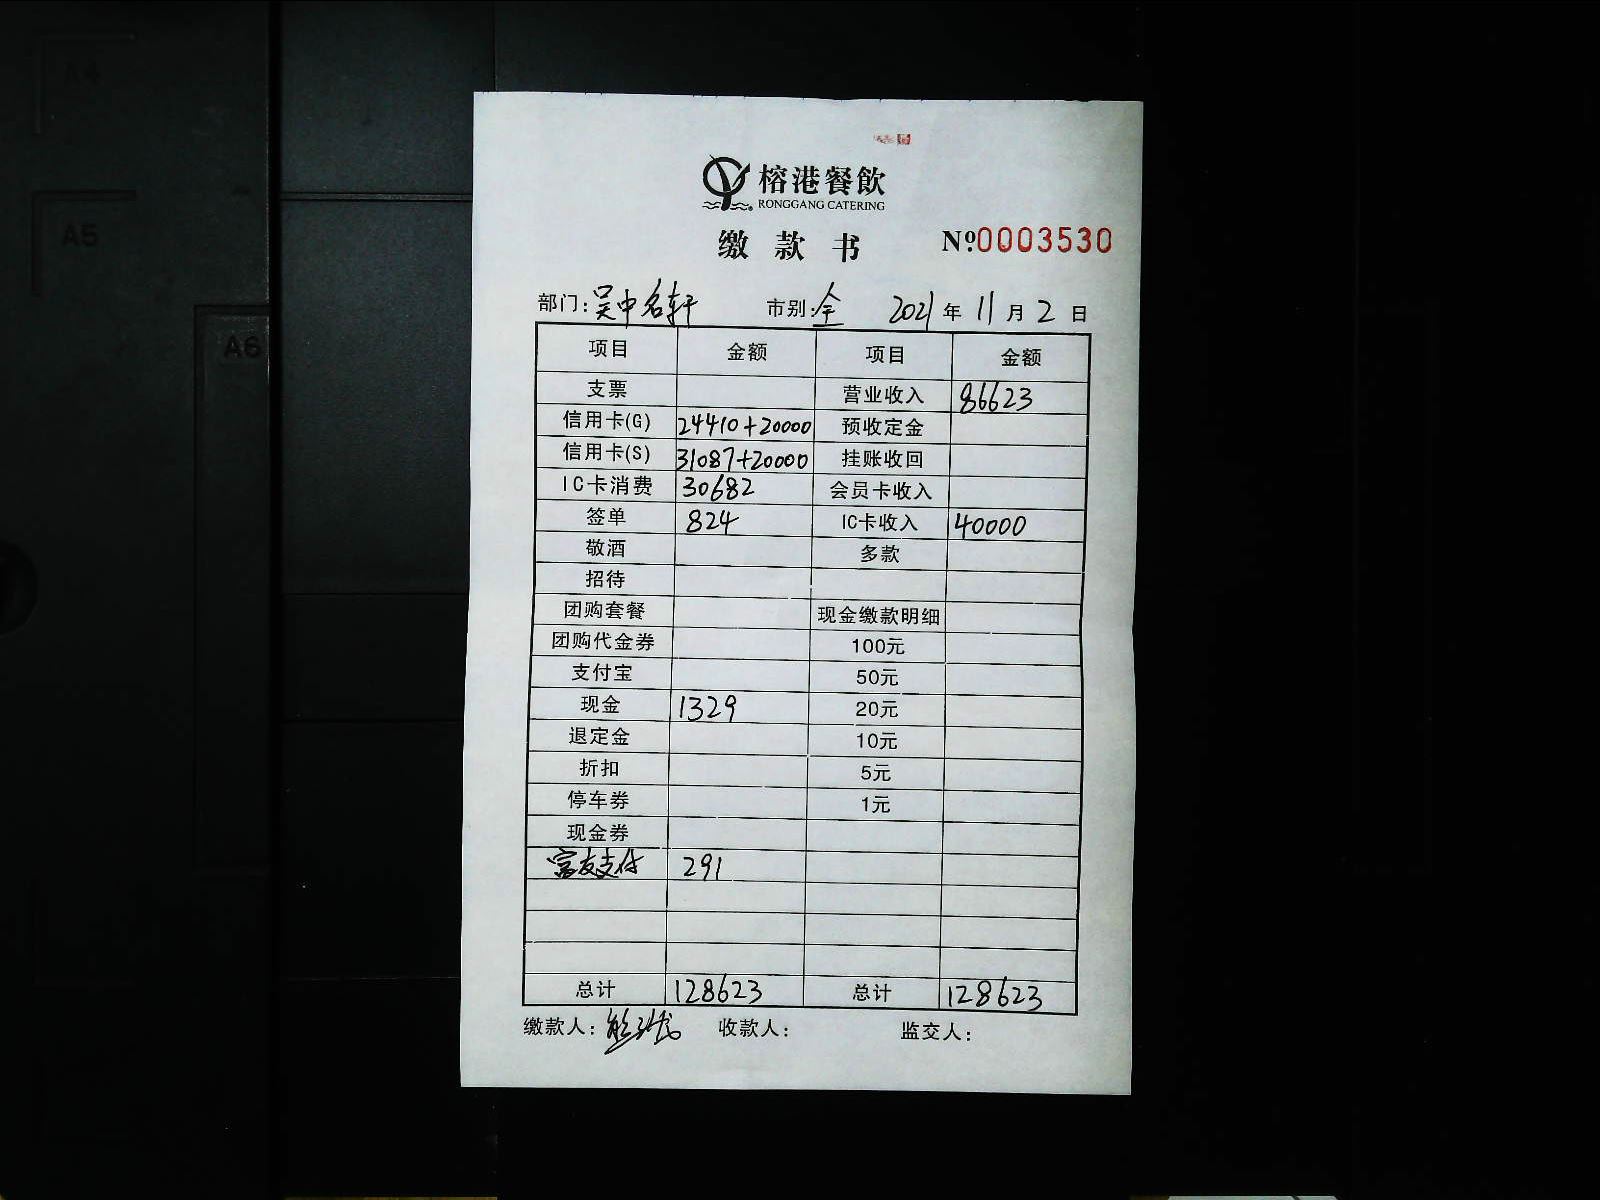 A4
A5
A6
榕港餐飲
RONGGANG CATERING
缴款书 Nº0003530
部门:吴中名轩 市别:全 2021年11月2日
项目 金额 项目 金额
支票 营业收入 86623
信用卡(G) 24410+20000 预收定金
信用卡(S) 31087+20000 挂账收回
IC卡消费 30682 会员卡收入
签单 824 IC卡收入 40000
敬酒 多款
招待
团购套餐 现金缴款明细
团购代金券 100元
支付宝 50元
现金 1329 20元
退定金 10元
折扣 5元
停车券 1元
现金券
富友支付 291
总计 128623 总计 128623
缴款人: 收款人: 监交人: